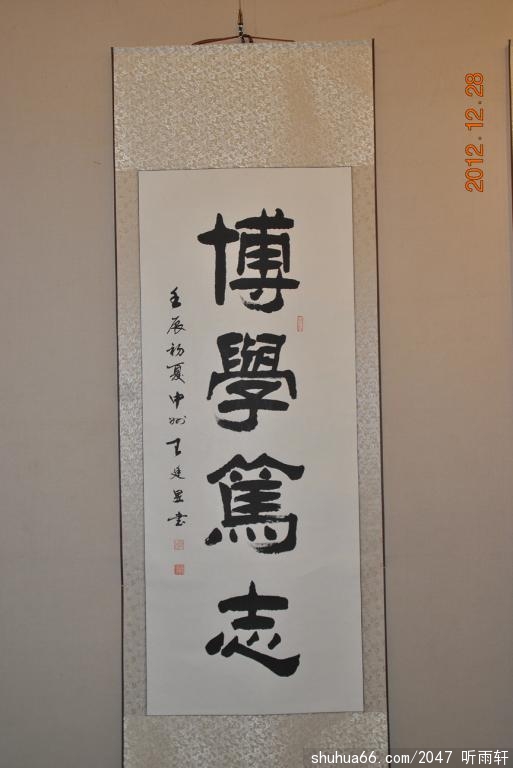 博學篤志
壬辰初夏中州王廷显書
2012.12.28
shuhua66.com/2047 听雨轩